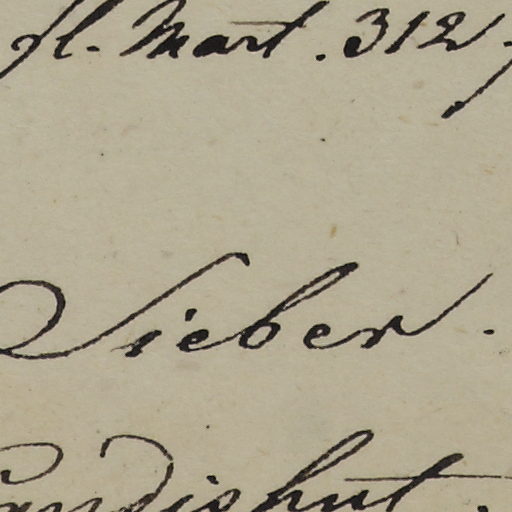 fl. Mart. 312.
Sieber.